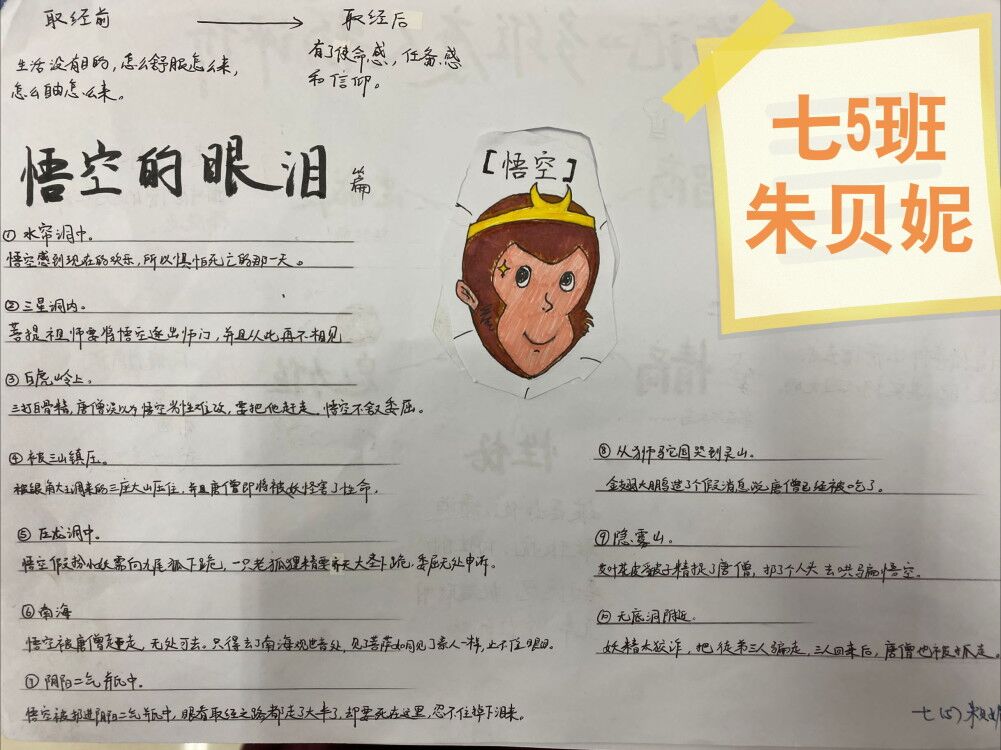 取经前
取经后
生活没有目的，怎么舒服怎么来，
怎么自由怎么来。
有了使命感，任务感
和信仰。
七5班
朱贝妮
悟空的眼泪篇
[悟空]
① 水帘洞中。
悟空感到现在的欢乐，所以惧怕死亡的那一天。
② 三星洞内。
菩提祖师要将悟空逐出师门，并且从此再不相见
③ 白虎岭上。
三打白骨精，唐僧误以为悟空劣性难改，要把他赶走，悟空不敌委屈。
④ 被三山镇压。
被银角大王调来的三座大山压住，并且唐僧即将被妖怪害了性命，
⑤ 压龙洞中。
悟空假扮小妖需向九尾狐下跪，一只老狐狸精要齐天大圣下跪，委屈无处申诉。
⑥ 南海
悟空被唐僧赶走，无处可去。只得去了南海观世音处，见了菩萨如同见了亲人一样，止不住眼泪。
⑦ 阴阳二气瓶中。
悟空被却进阴阳二气瓶中，眼看取经之路都走了大半了，却要死在这里，忍不住掉下泪来。
⑧ 从狮驼国哭到灵山。
金翅大鹏造了个假消息说唐僧已经被吃了。
⑨ 隐雾山。
艾叶花皮豹子精捉了唐僧，扔了个人头去哄骗悟空。
⑩ 无底洞附近
妖精太狡诈，把徒弟三人骗走，三人回来后，唐僧也不被抓走。
七(5) 朱贝妮